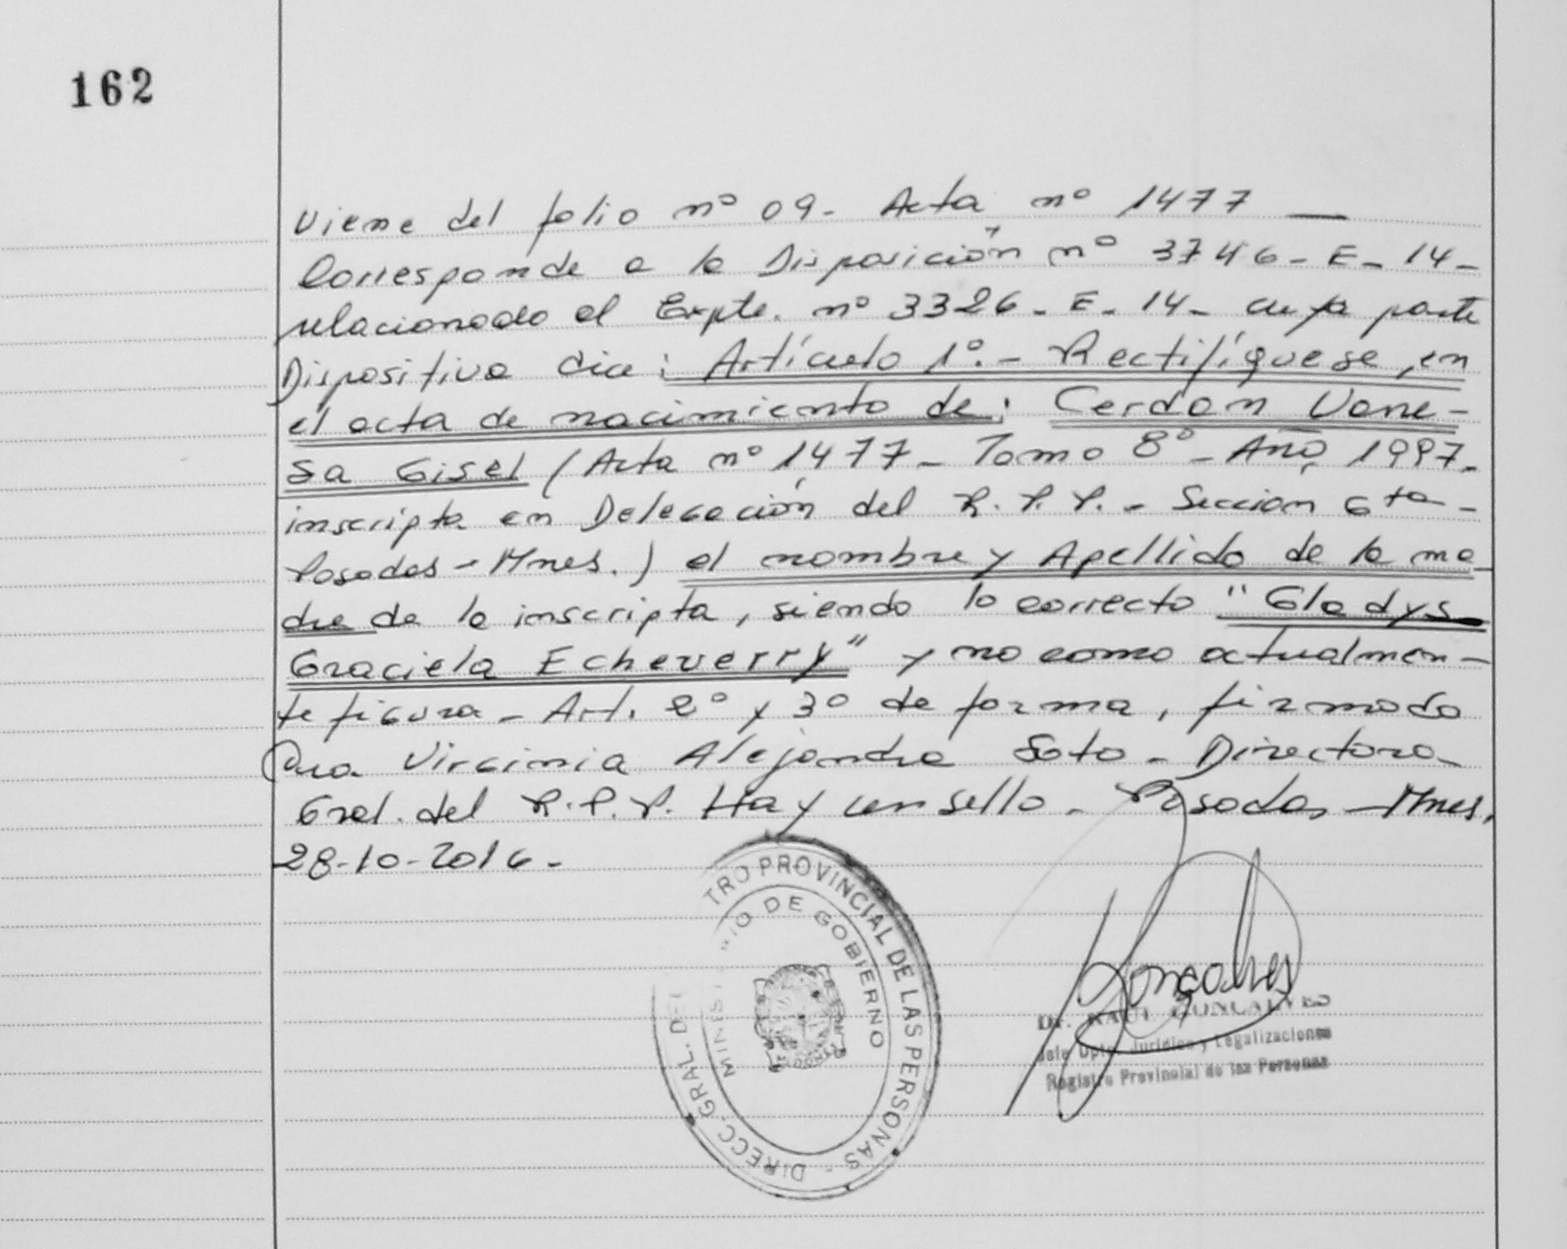 162
Viene del folio nº 09- Acta nº 1477 —
Corresponde a la Disposición nº 3746- E- 14-
relacionado al Expte. nº 3326- E- 14- cuya parte
Dispositiva dice: Artículo 1º.- Rectifíquese, en
el acta de nacimiento de: Cerdan Vane-
sa Gisel (Acta nº 1477- Tomo 8º- Año 1997.
inscripta en Delegación del R.P.P.- Sección 6ta-
Posadas- Mnes.) el nombre y Apellido de la ma
dre de la inscripta, siendo lo correcto "Gladys
Graciela Echeverry" y no como actualmen-
te figura- Art. 2º y 3º de forma, firmado
Dra. Virginia Alejandra Soto- Directora-
Gral. del R.P.P. Hay un sello- Posadas- Mnes,
28-10-2016-
DIRECC. GRAL. DEL TRO PROVINCIAL DE LAS PERSONAS -
MINIST IO DE GOBIERNO
Gonçalves
Dr. RAUL GONCALVES
Jefe Dpto. Jurídico y Legalizaciones
Registro Provincial de las Personas